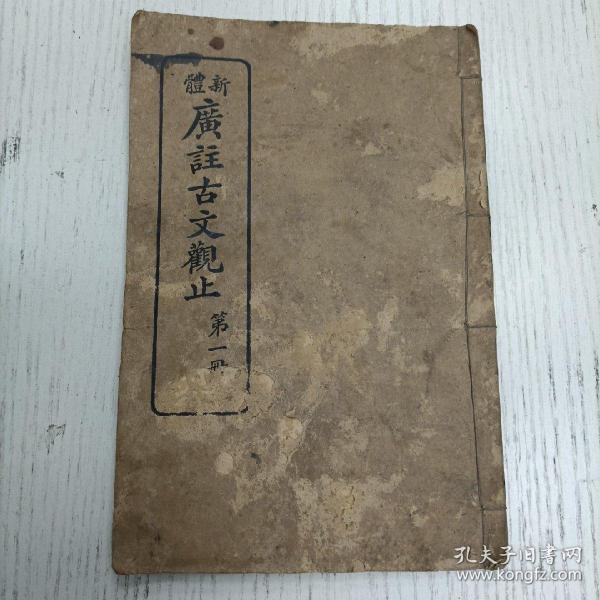 新體
廣註古文觀止
第一冊
孔夫子旧书网
www.kongfz.com